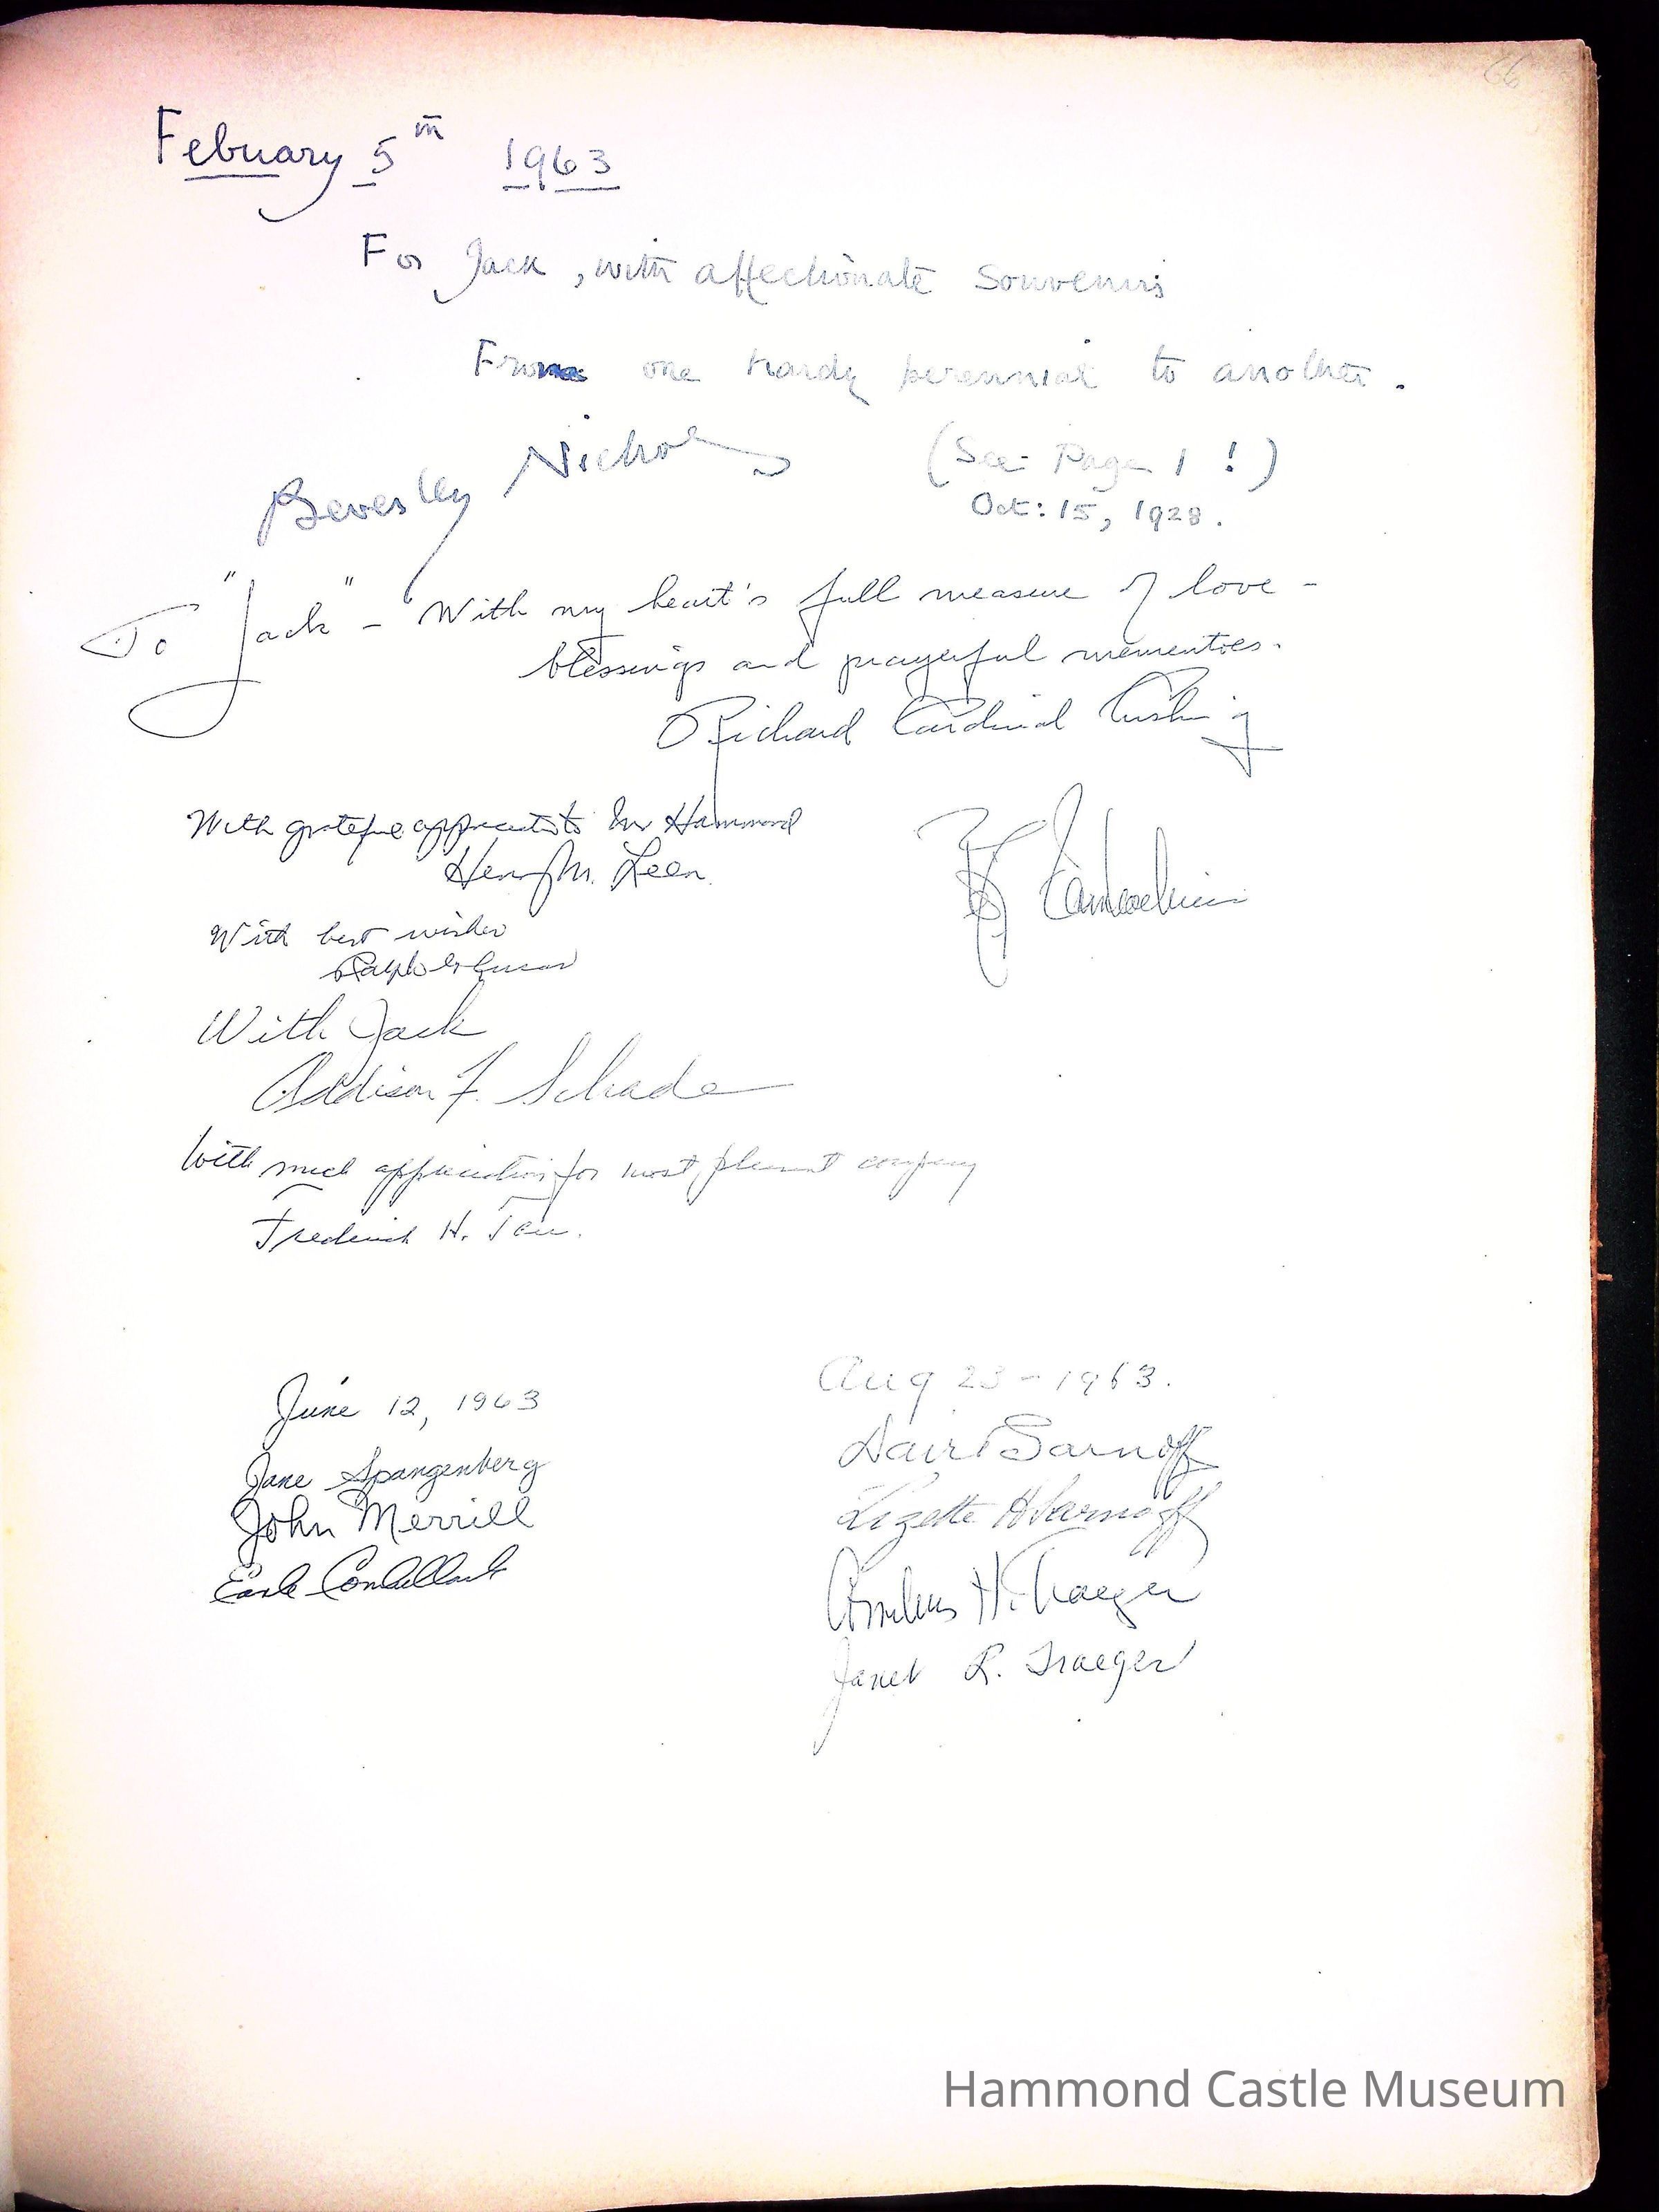 66
Febuary 5th 1963
For Jack, with affectionate souvenirs
From one hardy perennial to another.
Beverley Nichols
(See Page 1 !)
Oct: 15, 1928.
To "Jack" - With my heart's full measure of love -
blessings and prayerful mementoes.
Richard Cardinal Cushing
With grateful appreciation to Mr Hammond
Henry M. Leen
With best wishes
Ralph
With Jack
Addison F. Schade
With much appreciation for most pleasant company
Frederick H. Tarr
June 12, 1963
Jane Spangenberg
John Merrill
Earle
Aug 23 - 1963.
David Sarnoff
Lizette H Sarnoff
Cornelius H. Traeger
Janet R. Traeger
Hammond Castle Museum